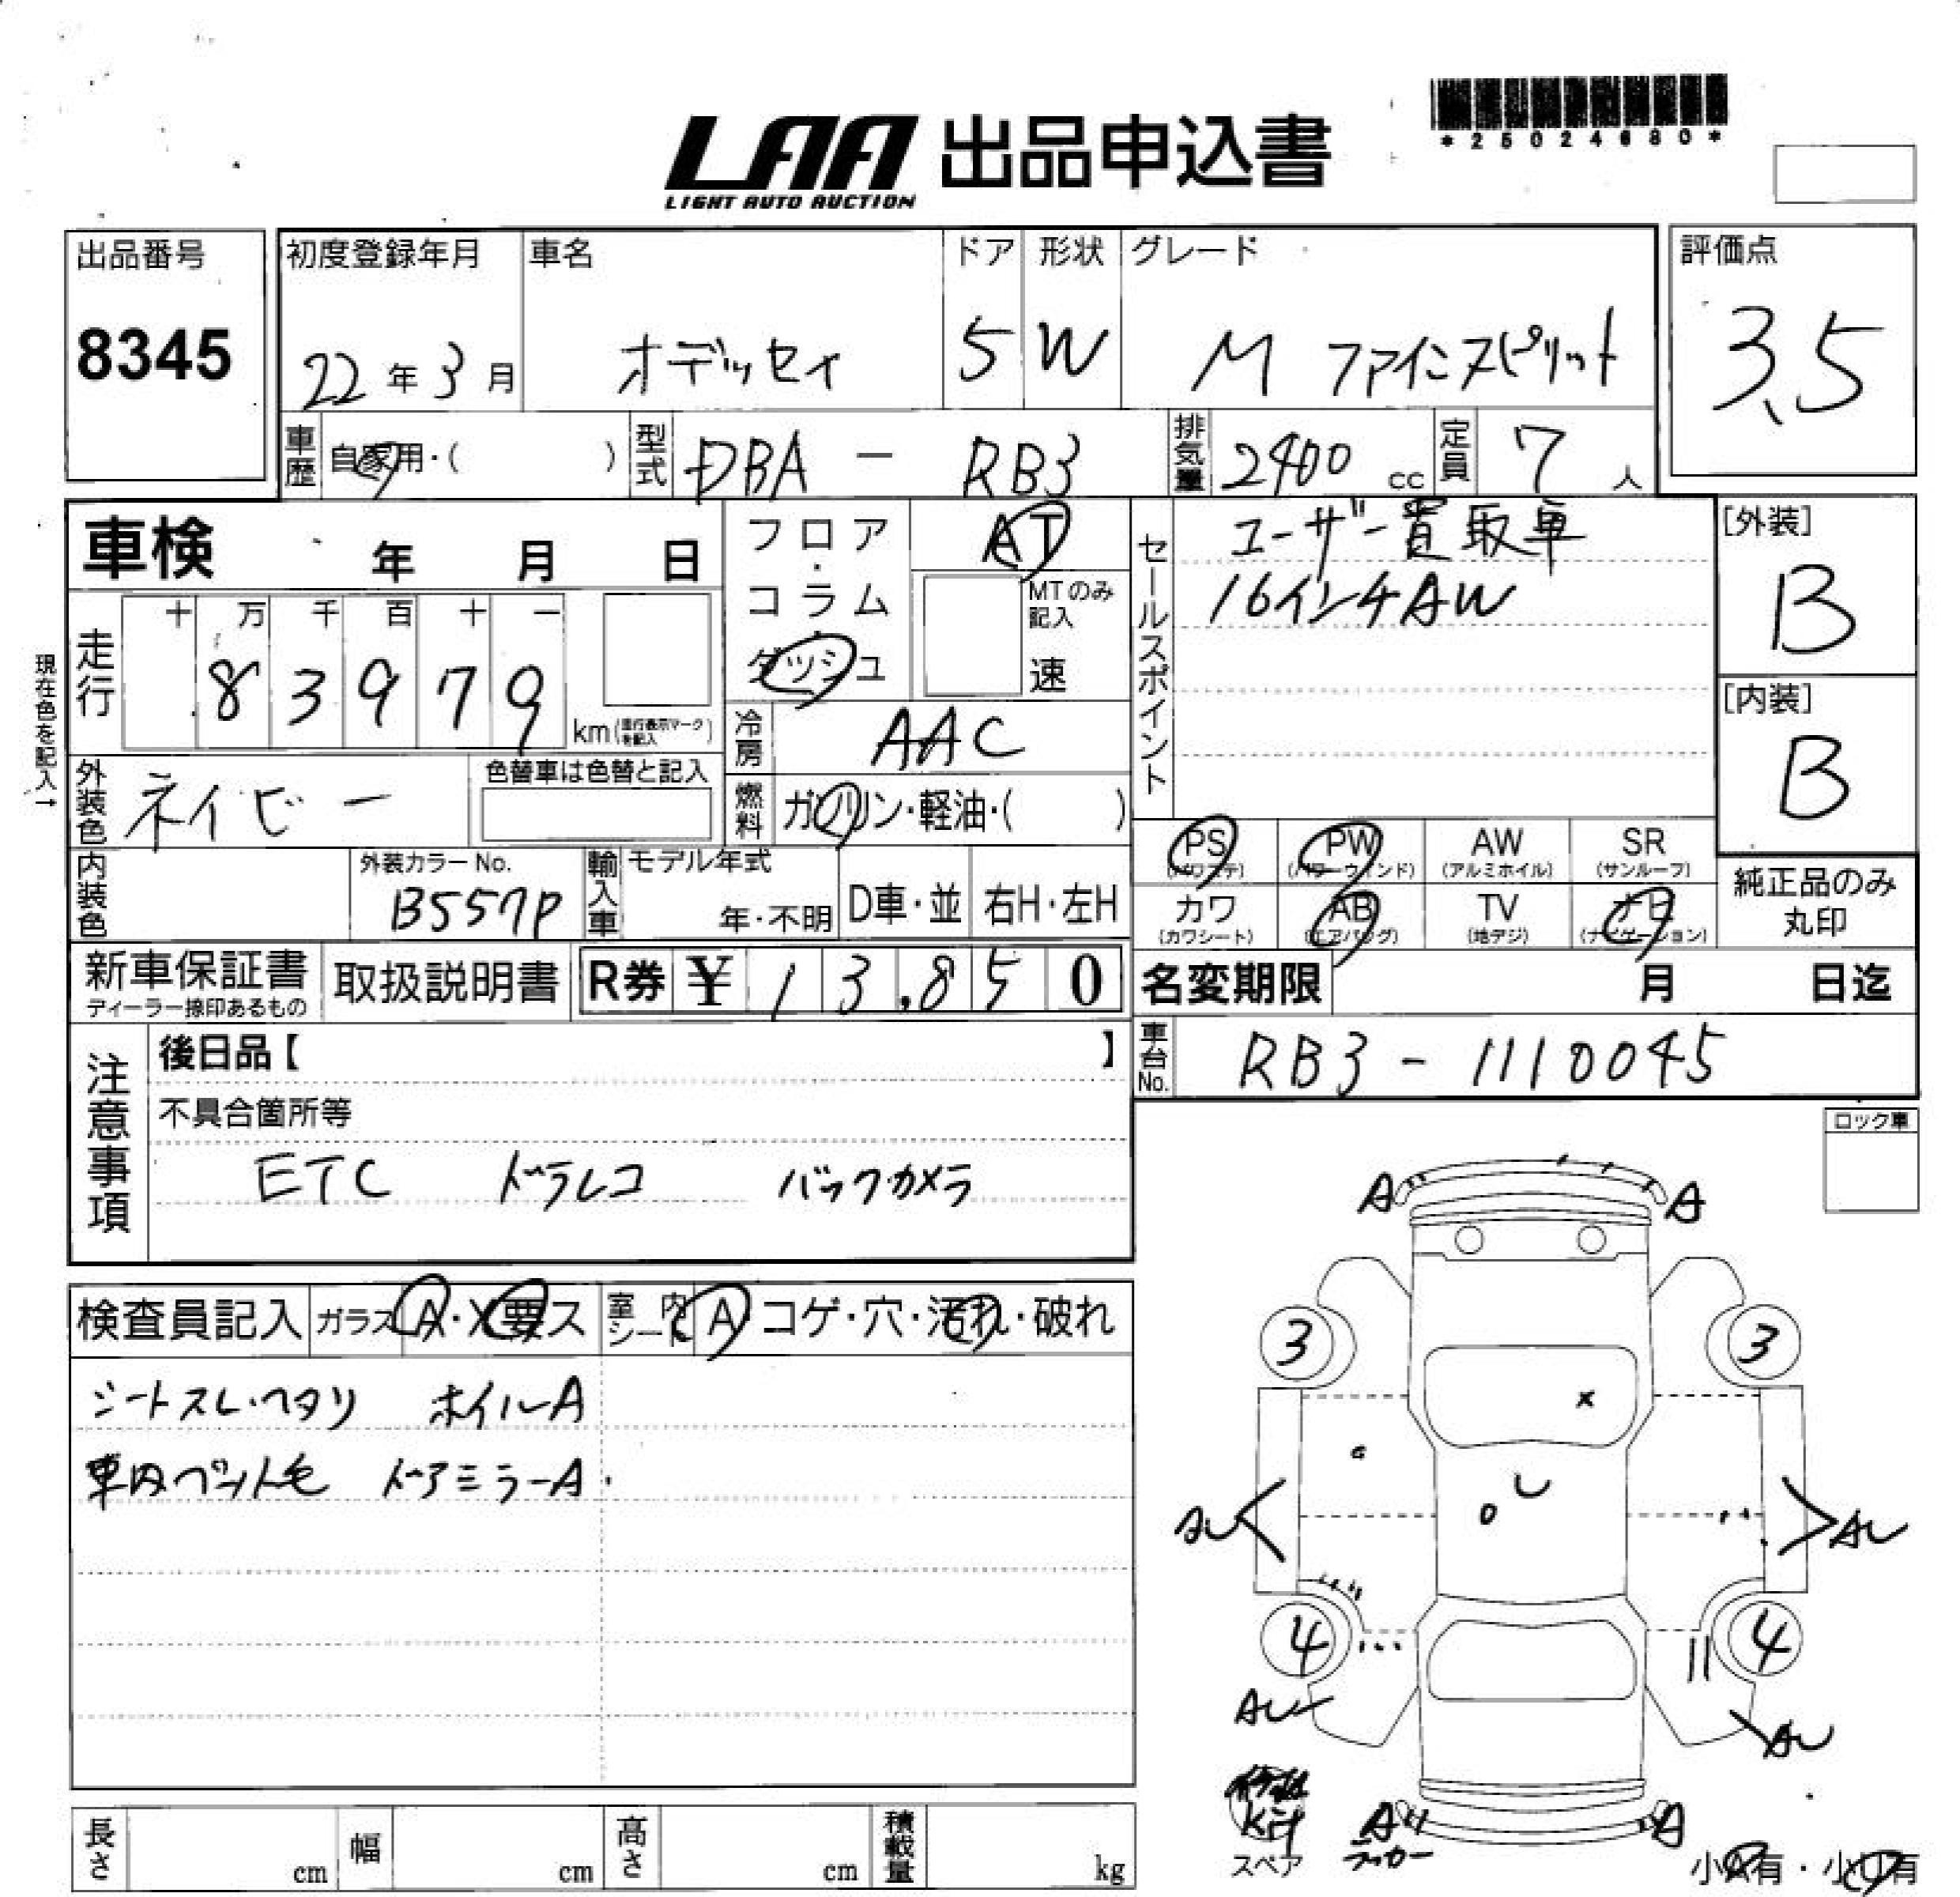 LAA 出品申込書
LIGHT AUTO AUCTION
*25024680*
出品番号
8345
初度登録年月
22年3月
車名
オデッセイ
ドア
5
形状
W
グレード
M ファインスピリット
評価点
3.5
車歴
自家用・( )
型式
DBA - RB3
排気量
2400 cc
定員
7人
車検 年 月 日
フロア・コラム・ダッシュ
AT
MTのみ記入
速
セールスポイント
ユーザー買取車
16インチAW
[外装]
B
[内装]
B
現在色を記入→
走行
十 万 千 百 十 一
83979
km(走行表示マークを記入)
冷房
AAC
外装色
ネイビー
色替車は色替と記入
燃料
ガソリン・軽油・( )
PS (パワステ)
PW (パワーウィンド)
AW (アルミホイル)
SR (サンルーフ)
カワ (カワシート)
AB (エアバッグ)
TV (地デジ)
ナビ (ナビゲーション)
純正品のみ丸印
内装色
外装カラーNo.
B557P
輸入車
モデル年式
年・不明
D車・並
右H・左H
新車保証書
ディーラー捺印あるもの
取扱説明書
R券 ¥13,850
名変期限 月 日迄
車台No.
RB3 - 1110045
注意事項
後日品【 】
不具合箇所等
ETC ドラレコ バックカメラ
ロック車
検査員記入
ガラス A・X要ス
室内シート A・コゲ・穴・汚れ・破れ
シートスレ・ヘタリ ホイルA
車内ペット毛 ドアミラーA
A A
3 3
x
AU AU
4 4
AU AU
スペア
A A
ラッカー
小A有・小U有
長さ cm
幅 cm
高さ cm
積載量 kg